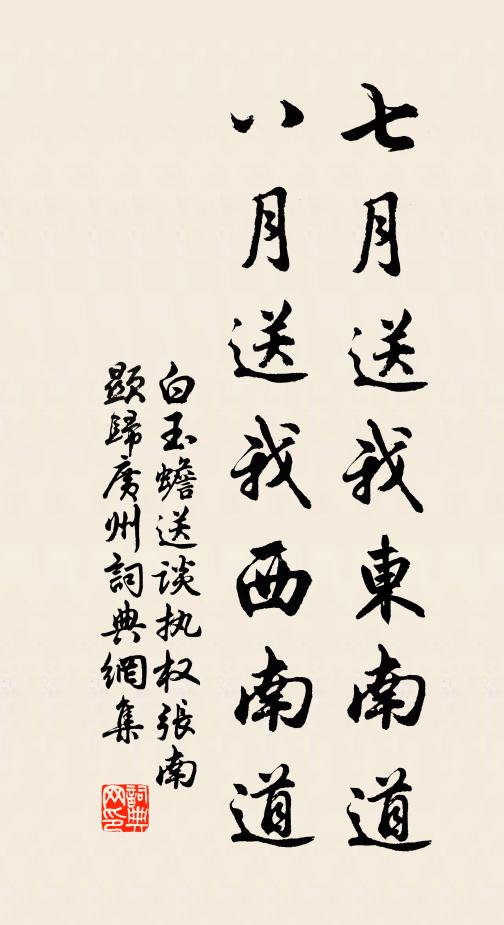 七月送我東南道
八月送我西南道
白玉蟾送談执权張南
顯歸廣州詞典網集
詞典网印